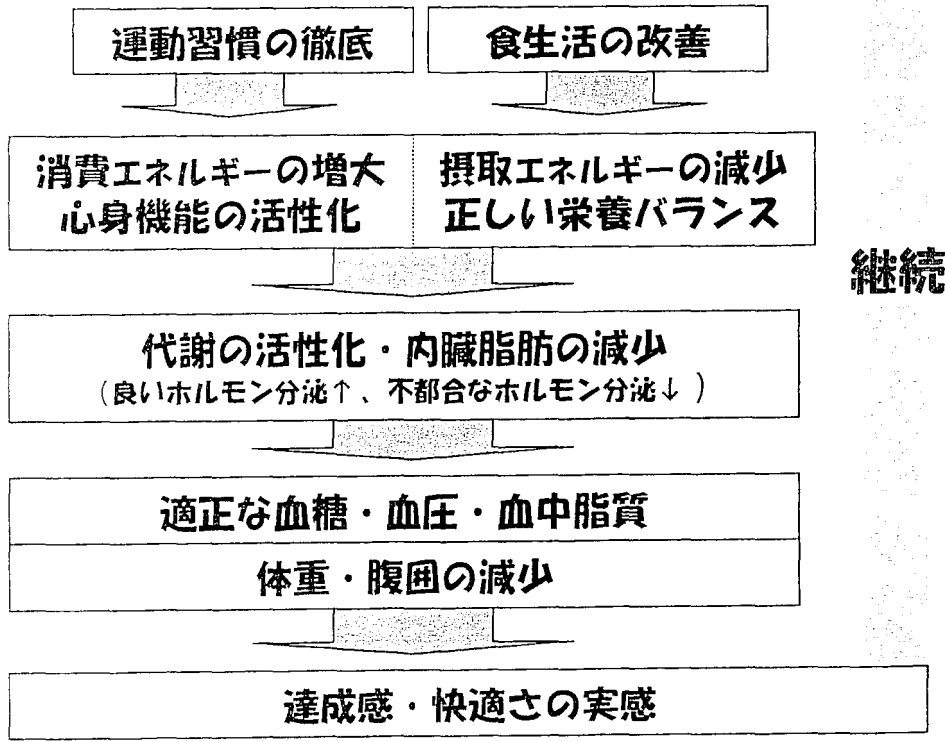 運動習慣の徹底
食生活の改善
消費エネルギーの増大
心身機能の活性化
摂取エネルギーの減少
正しい栄養バランス
継続
代謝の活性化・内臓脂肪の減少
(良いホルモン分泌↑、不都合なホルモン分泌↓)
適正な血糖・血圧・血中脂質
体重・腹囲の減少
達成感・快適さの実感